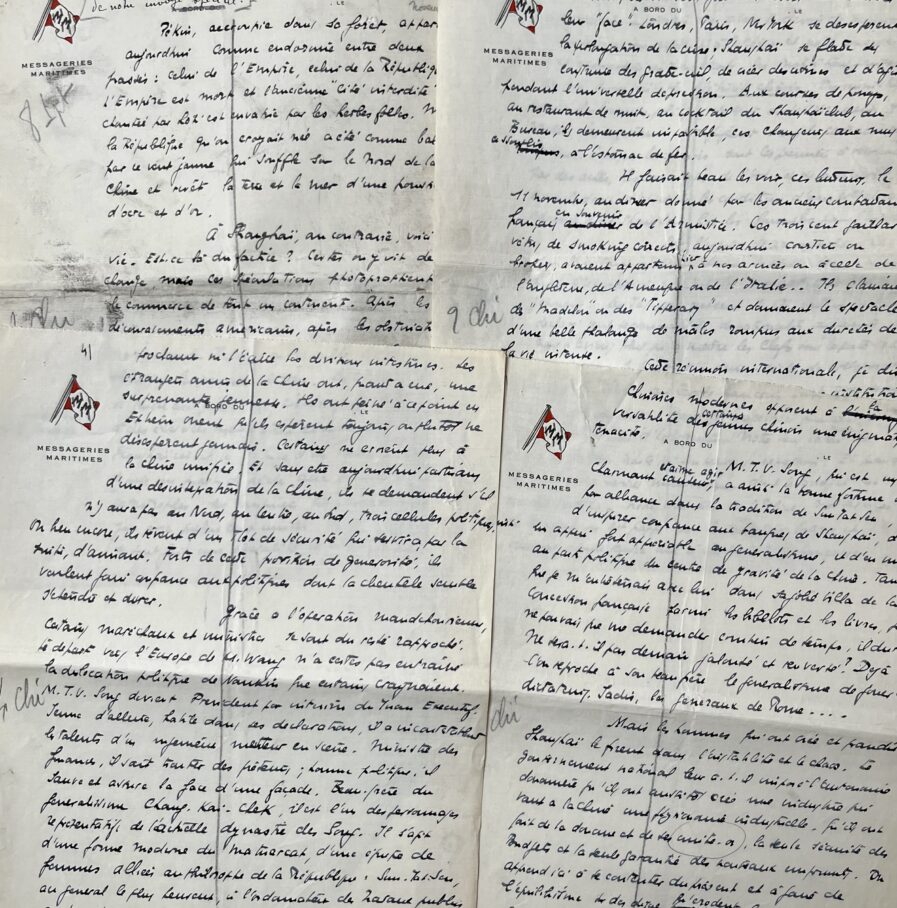 de notre envoyé spécial
MESSAGERIES
MARITIMES
Pékin, accroupie dans sa forêt,
aujourd'hui comme endormie entre deux
passés : celui de l'Empire, celui de la République
l'Empire est mort et l'ancienne cité interdite
chantée par Loti est envahie par les herbes folles.
la République qu'on croyait née a été comme
par ce vent jaune qui souffle sur le Nord de la
Chine et revêt la terre et la mer d'une
d'ocre et d'or.
À Shanghaï, au contraire, voici
vie. Est-ce là du factice ? Certes on y vit de
change mais ces spéculations photographient
le commerce de tout un continent. Après les
américains, après les
LE
A BORD DU
MESSAGERIES
MARITIMES
leur "face" Londres, Paris, New York se désespèrent
la prolongation de la crise : Shanghaï se flatte de
construire des gratte-ciel, de créer des usines et d'agir
pendant l'universelle dépression. Aux courses de poneys,
au restaurant de nuit, au cocktail du Shanghaï club, au
Bureau, ils demeurent impassibles, ces changeurs aux
à l'estomac de fer.
Il faisait beau les voir, ces lutteurs, le
11 novembre, au dîner donné par les anciens combattants
français en souvenir de l'Armistice. Ces trois cent gaillards
vêtus de smoking corrects, aujourd'hui courtiers ou
brokers, avaient appartenu hier à nos armées ou à celle de
l'Angleterre, de l'Amérique ou de l'Italie.. Ils
des "Madelon" ou des "Tipperary" et donnaient le spectacle
d'une belle phalange de mâles rompus aux duretés de
la vie intense.
Cette réunion internationale, je
9 chi
41
MESSAGERIES
MARITIMES
A BORD DU
LE
proclame ni l'égalité les divisions intestines. Les
étrangers amis de la Chine ont, quant à eux, une
surprenante jeunesse. Ils ont peiné à ce point en
Extrême orient qu'ils espèrent toujours, ou plutôt ne
désespèrent jamais. Certains ne croient plus à
la Chine unifiée. Et sans être aujourd'hui partisans
d'une désintégration de la Chine, ils se demandent s'il
n'y aura pas au Nord, au Centre, au Sud, trois cellules politiques,
ou bien encore, ils rêvent d'un îlot de sécurité qui servira par la
suite, d'aimant. Forts de cette position de générosité, ils
veulent faire confiance aux politiques dont la clientèle semble
s'étendre et durer.
Grâce à l'opération mandchourienne,
certains maréchaux et ministres se sont du reste rapprochés.
le départ vers l'Europe de M. Wang n'a certes pas entraîné
la dislocation politique de Nankin que certains craignaient.
M. T. V. Song devient Président par intérim du Yuan Exécutif.
Jeune d'allure, habile dans ses déclarations, il a incontestablement
les talents d'un ingénieux metteur en scène. Ministre des
finances, il sait traiter des prêteurs ; homme politique, il
sauve et assure la face d'une façade. Beau-frère du
généralissime Chang-Kaï-Chek, il est l'un des personnages
représentatifs de l'actuelle dynastie des Song. Il s'agit
d'une forme moderne du matriarcat, d'une équipe de
femmes alliées au philosophe de la République : Sun-Yat-Sen,
au général le plus heureux, à l'ordonnateur de travaux publics
MESSAGERIES
MARITIMES
A BORD DU
LE
Chinoises modernes opposent à la
versatilité de certains jeunes chinois une énigmatique
tenacité.
Charmant M. T. V. Song, qui est
a ainsi la bonne fortune
par alliance dans la tradition de Sun Yat Sen,
d'inspirer confiance aux banques de Shanghaï,
un appui fort appréciable au généralissime, et d'en
au parti politique du centre de gravité de la Chine. Tandis
que je m'entretenais avec lui dans sa jolie villa de la
Concession française parmi les bibelots et les livres, je
ne pouvais que me demander combien de temps, il
Ne sera-t-il pas demain jalousé et renversé ? Déjà
l'on reproche à son beau frère le généralissime de jouer
dictateurs. Jadis, les généraux de Rome....
Mais les hommes qui ont créé et grandi
Shanghaï le firent dans l'instabilité et le chaos. Le
gouvernement national leur a-t-il imposé l'autonomie
douanière qu'ils ont aussitôt créé une industrie qui
vaut à la Chine une physionomie industrielle. Qu'ils ont
fait de la douane et de ses unités-or, la seule sécurité des
Budgets et la seule garantie des nouveaux emprunts. On
apprend ici à se contenter du présent et à faire de
chi
chi